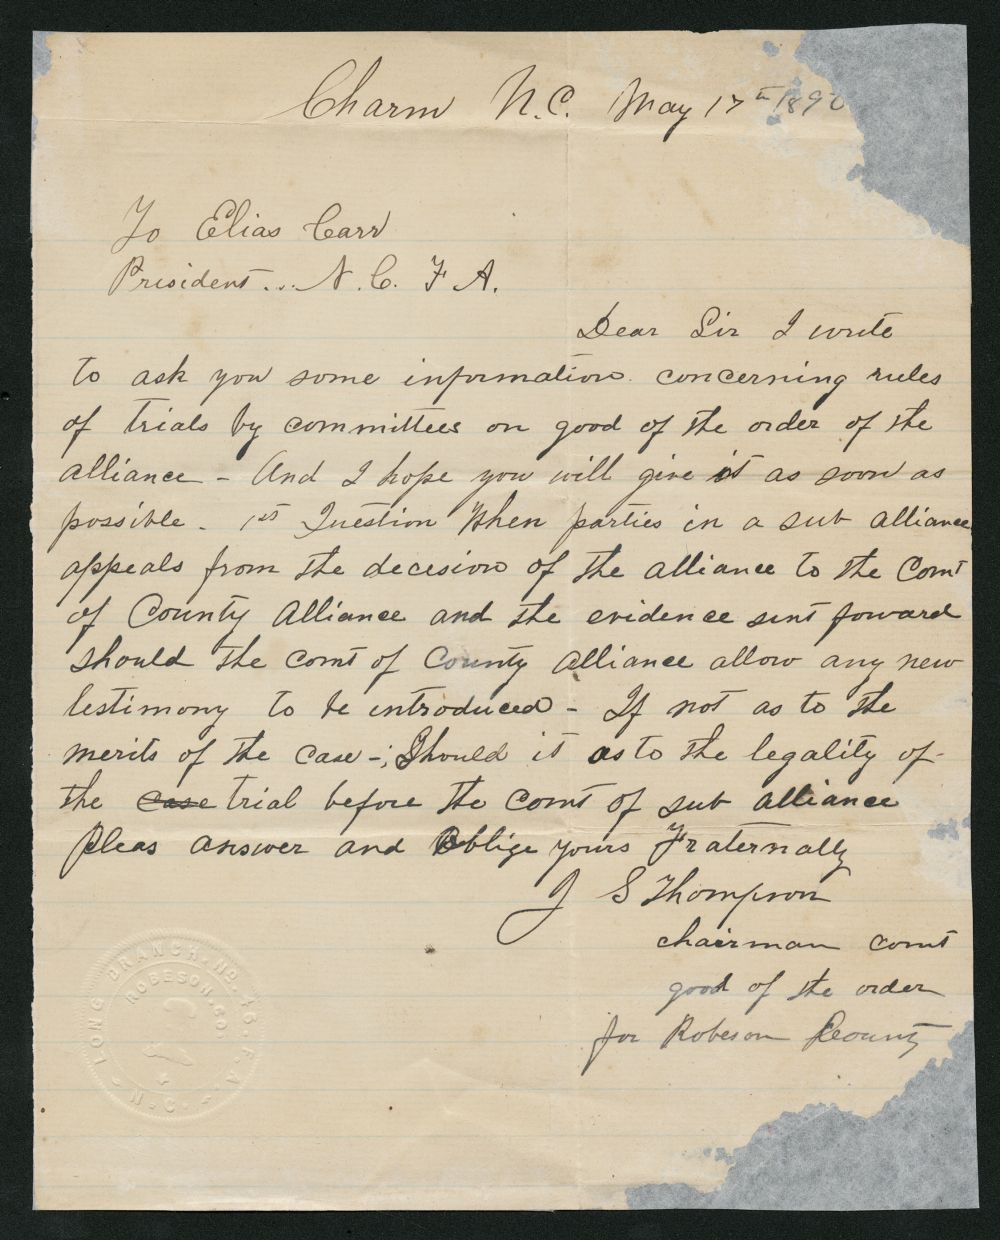 Charm N.C. May 17th 1890
To Elias Carr
President... N. C. F A.
Dear Sir I write
to ask you some information concerning rules
of trials by committees on good of the order of the
alliance - And I hope you will give it as soon as
possible - 1st Question When parties in a sub alliance
appeals from the decision of the alliance to the Comt
of County Alliance and the evidence sent forward
should the comt of County Alliance allow any new
testimony to be introduced - If not as to the
merits of the case -; Should it as to the legality of
the case trial before the comt of sub alliance
Pleas answer and oblige yours Fraternally
J S Thompson
chairman comt
good of the order
for Robeson County
LONG BRANCH. NO. 46. F. A.
ROBESON. CO.
N. C.